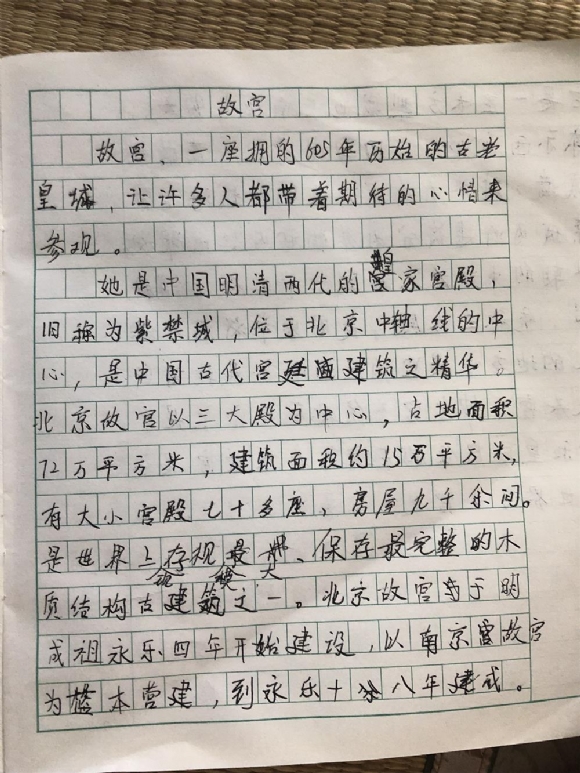 故宫
故宫,一座拥的605年历始的古老
皇城,让许多人都带着期待的心情来
参观。
她是中国明清两代的皇家宫殿,
旧称为紫禁城,位于北京中轴线的中
心,是中国古代宫廷建筑之精华。
北京故宫以三大殿为中心,占地面积
72万平方米,建筑面积约15万平方米,
有大小宫殿七十多座,房屋九千余间。
是世界上存规最、保存最完整的木
质结构古建筑之一。北京故宫于明
成祖永乐四年开始建设,以南京故宫
为蓝本营建,到永乐十八年建成。